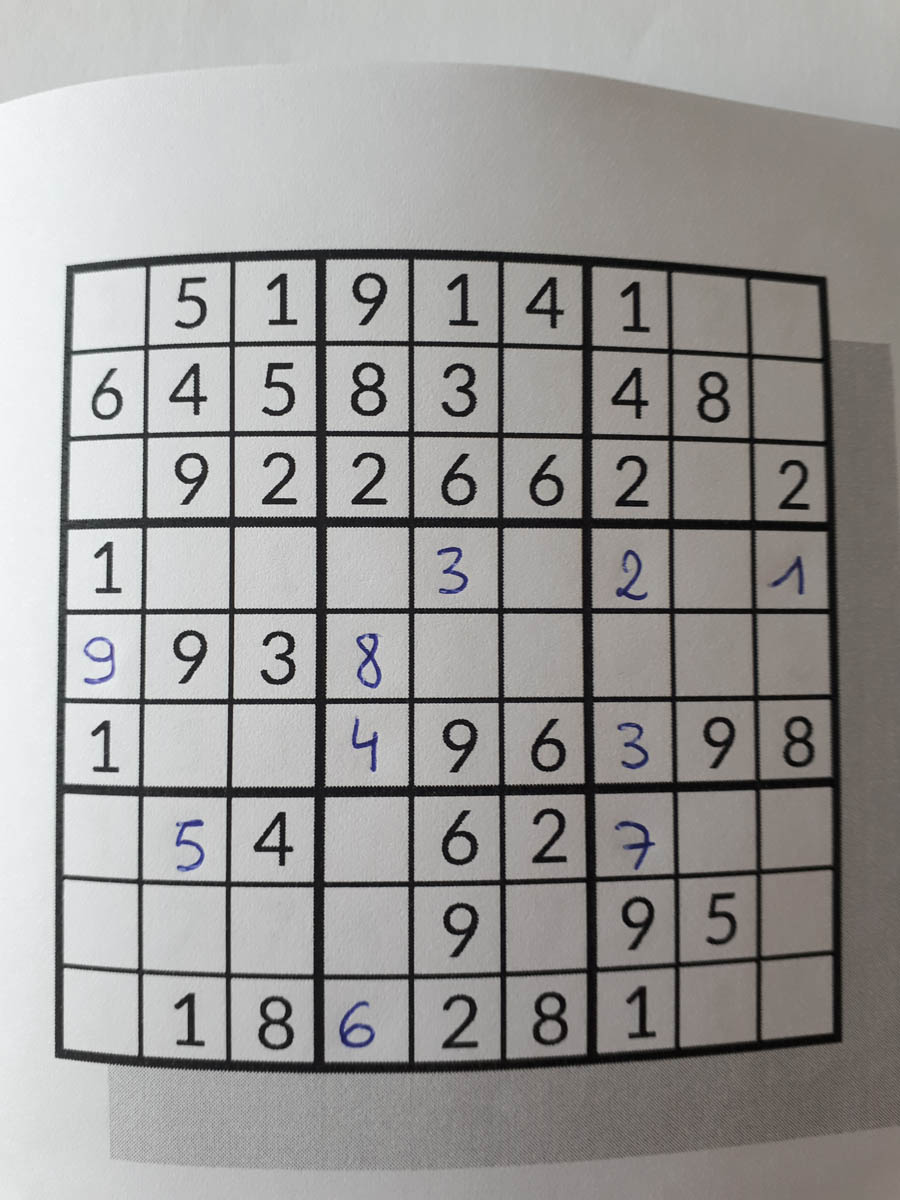 5 1 9 1 4 1
6 4 5 8 3 4 8
9 2 2 6 6 2 2
1 3 2 1
9 9 3 8
1 4 9 6 3 9 8
5 4 6 2 7
9 9 5
1 8 6 2 8 1